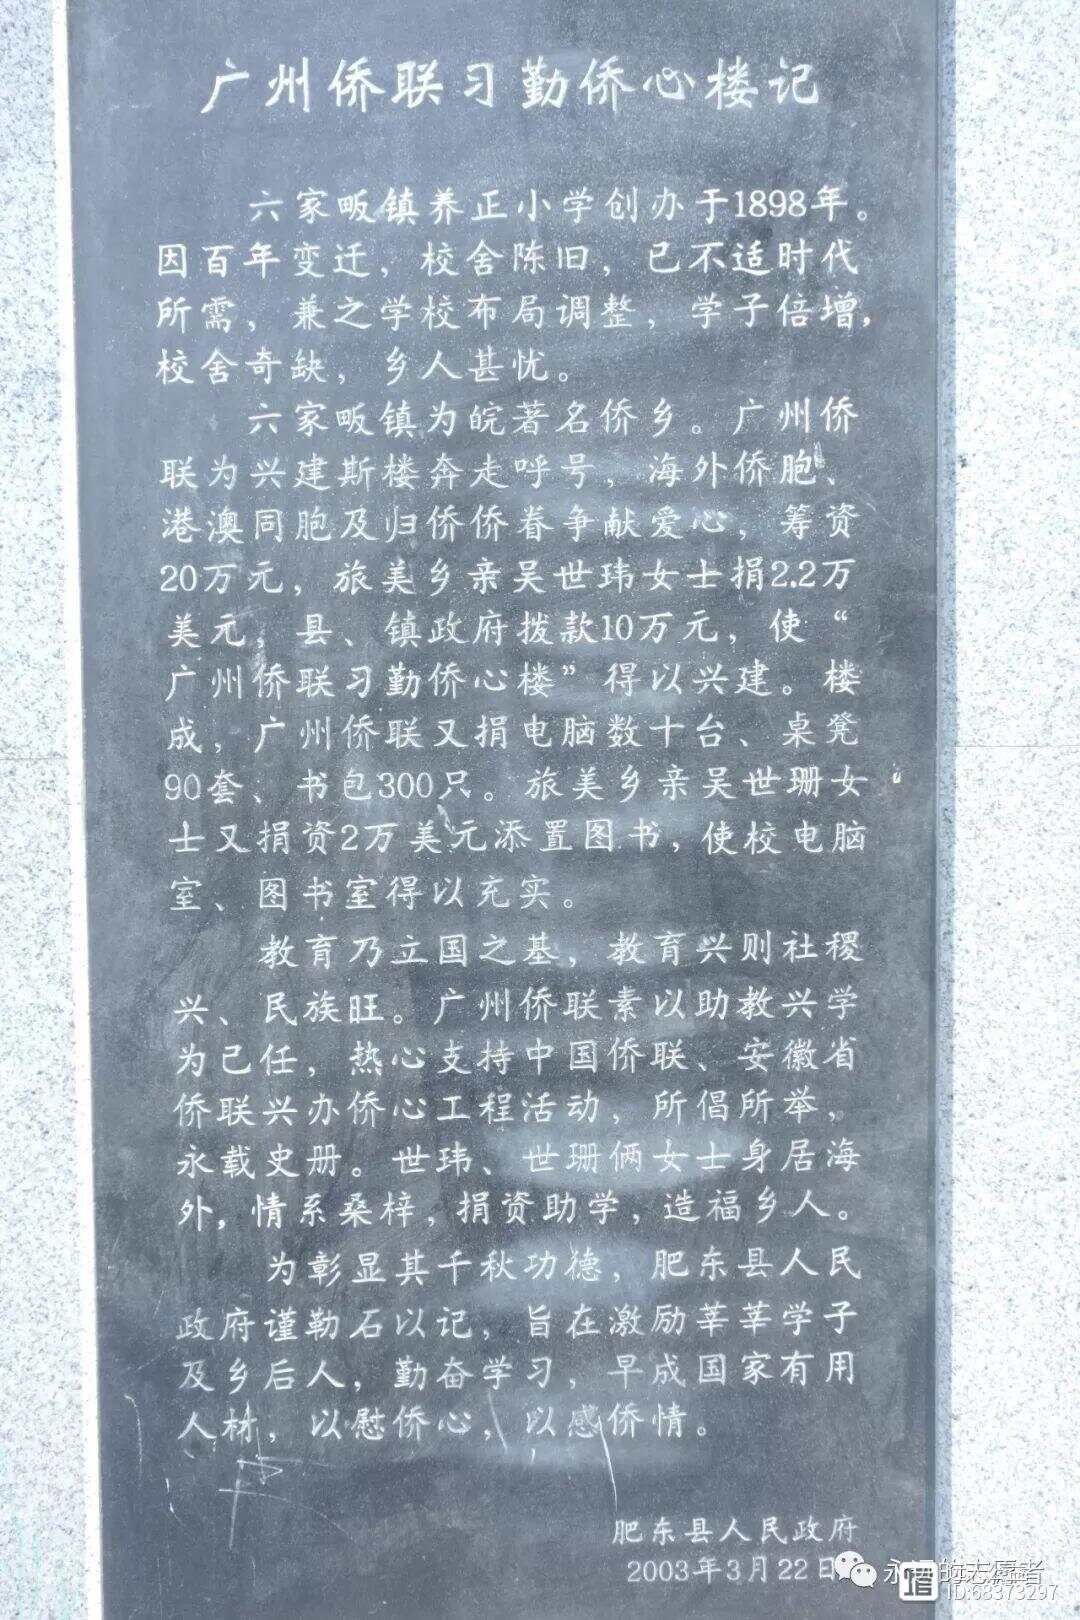 广州侨联习勤侨心楼记
六家畈镇养正小学创办于1898年。
因百年变迁，校舍陈旧，已不适时代
所需，兼之学校布局调整，学子倍增，
校舍奇缺，乡人甚忧。
六家畈镇为皖著名侨乡。广州侨
联为兴建斯楼奔走呼号，海外侨胞、
港澳同胞及归侨侨眷争献爱心，筹资
20万元，旅美乡亲吴世玮女士捐2.2万
美元，县、镇政府拨款10万元，使“
广州侨联习勤侨心楼”得以兴建。楼
成，广州侨联又捐电脑数十台、桌凳
90套、书包300只。旅美乡亲吴世珊女
士又捐资2万美元添置图书，使校电脑
室、图书室得以充实。
教育乃立国之基，教育兴则社稷
兴、民族旺。广州侨联素以助教兴学
为己任，热心支持中国侨联、安徽省
侨联兴办侨心工程活动，所倡所举，
永载史册。世玮、世珊俩女士身居海
外，情系桑梓，捐资助学，造福乡人。
为彰显其千秋功德，肥东县人民
政府谨勒石以记，旨在激励莘莘学子
及乡后人，勤奋学习，早成国家有用
人材，以慰侨心，以感侨情。
肥东县人民政府
2003年3月22日
永 的志愿者
ID:68373297